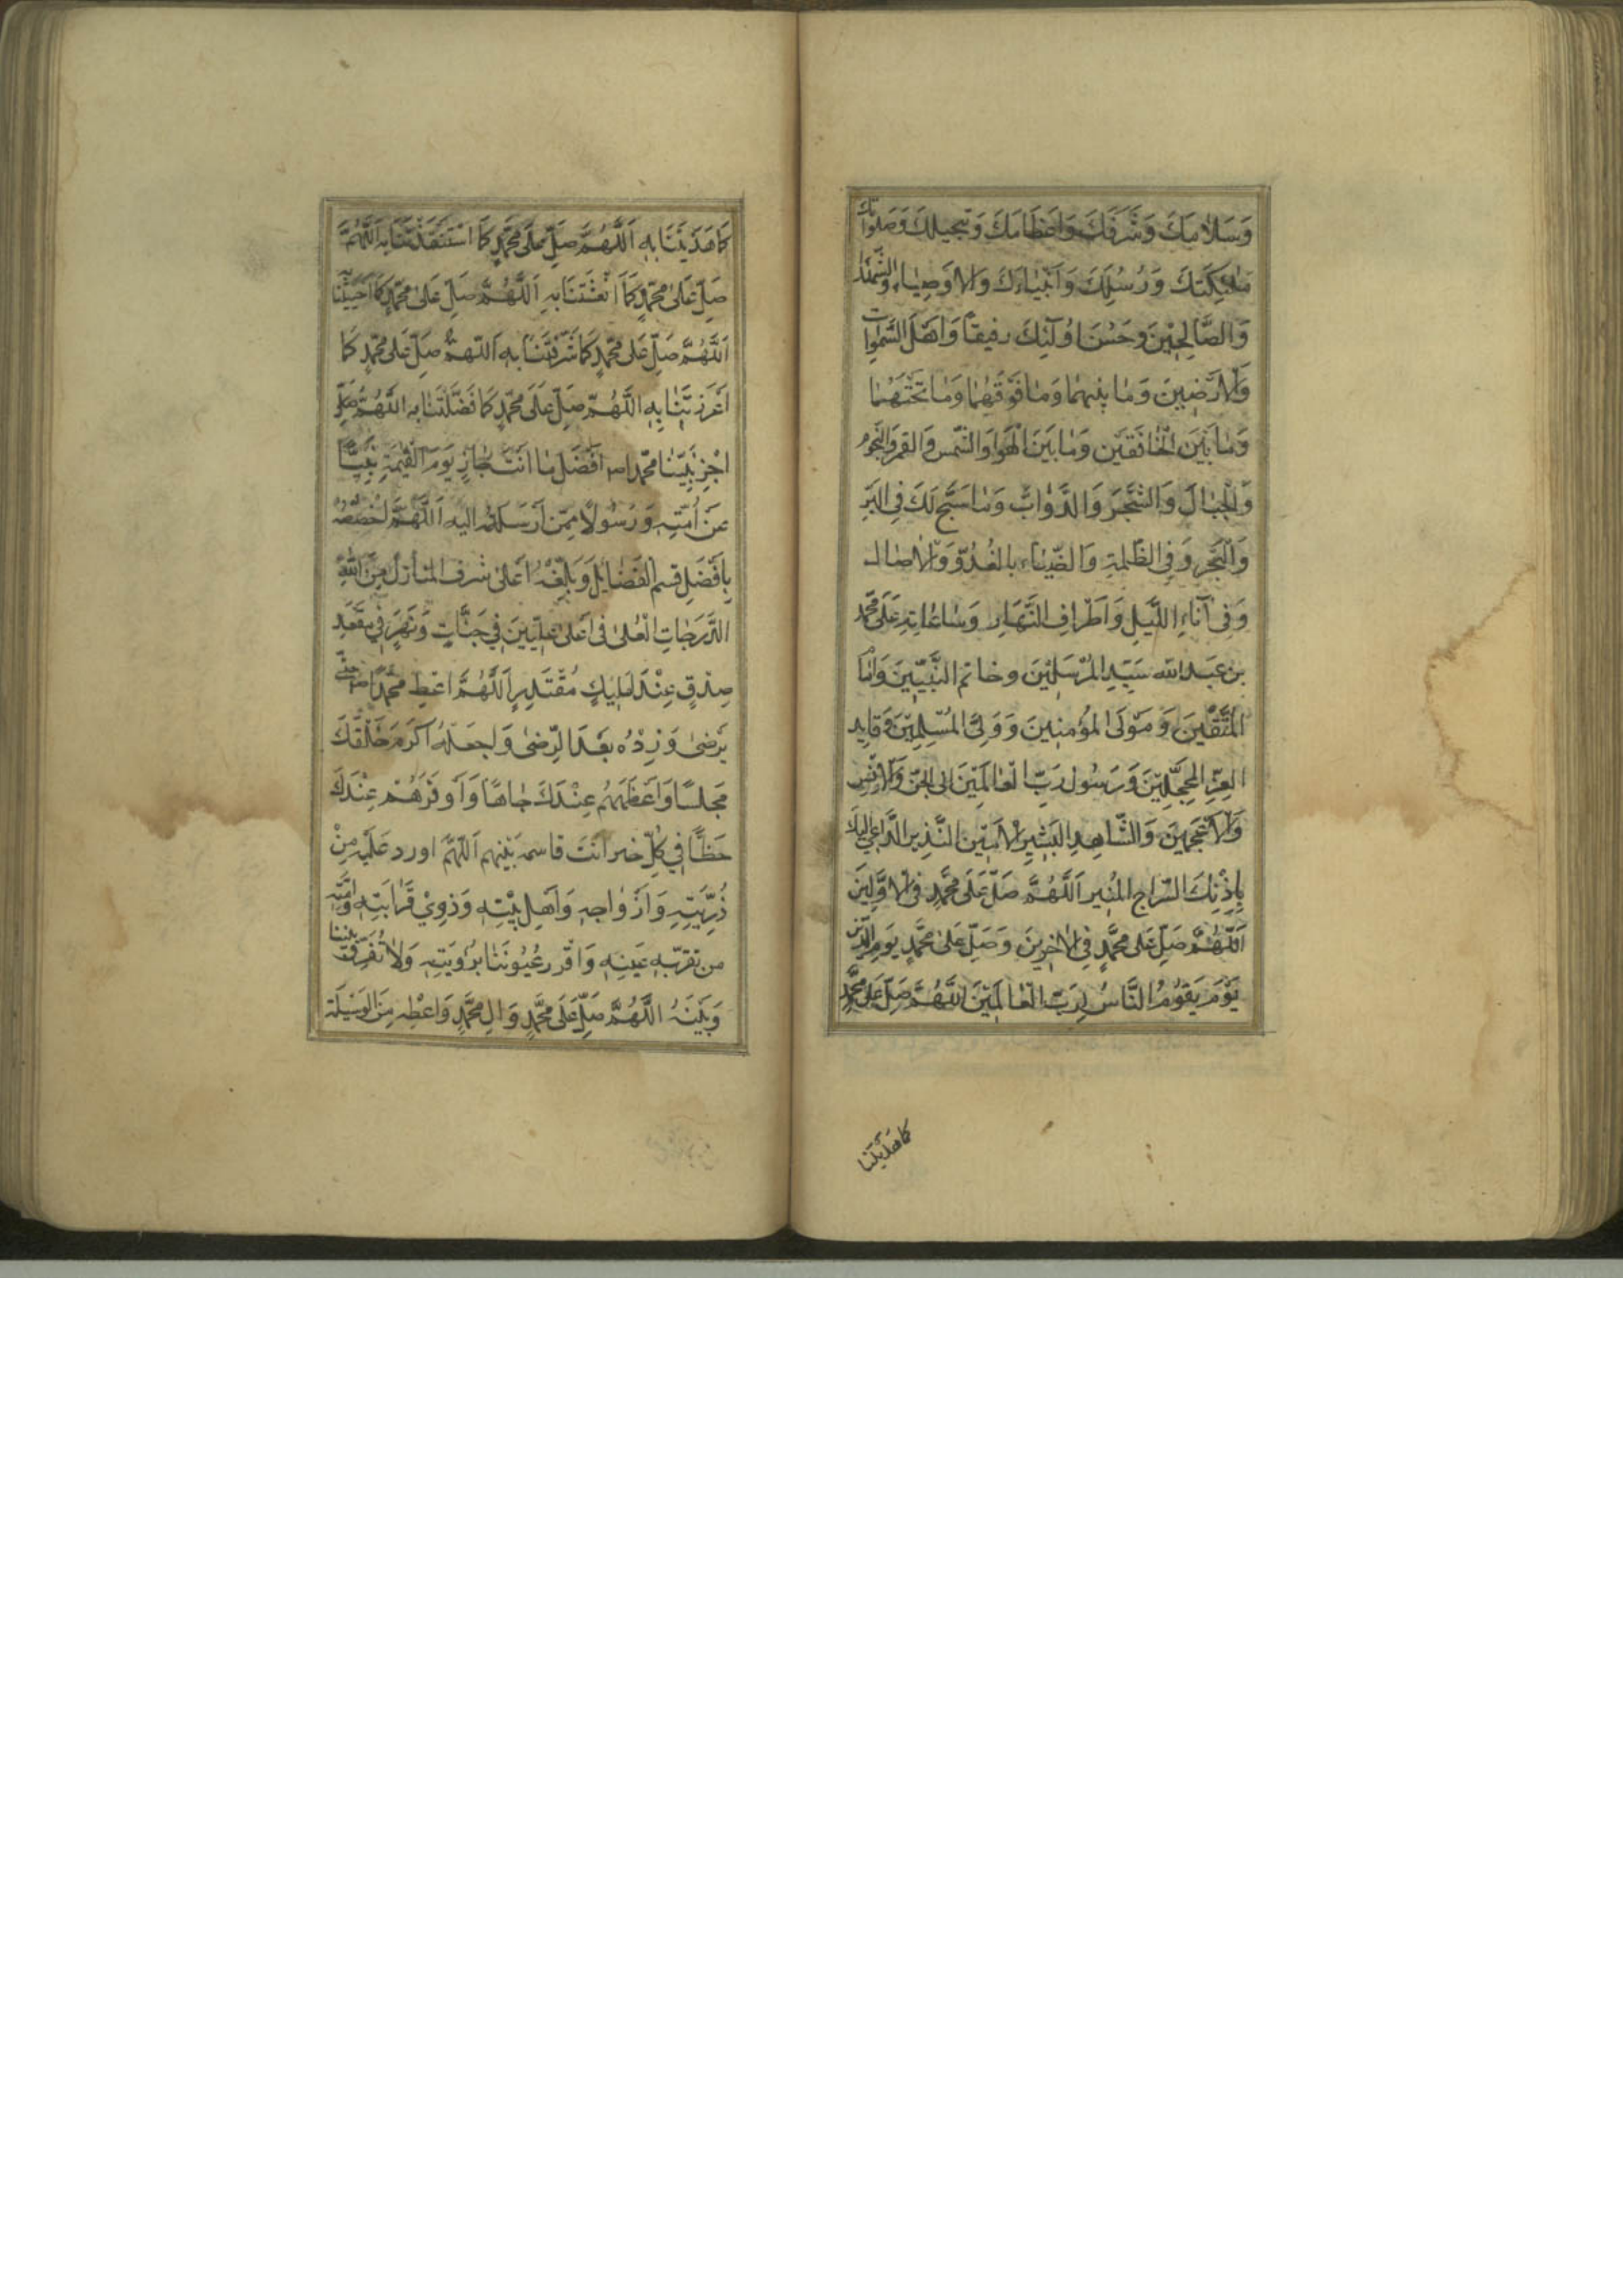 وَسَلَامِكَ وَشَرَفِكَ وَاِعْظَامِكَ وَتَبْجِيلِكَ وَصَلَوَاتِكَ
مَلٰئِكَتِكَ وَرُسُلِكَ وَاَنْبِيَاءِكَ وَالاَوْصِيَاءِ وَالشُّهَدَا
وَالصَّالِحِيْنَ وَحَسُنَ اُولٰئِكَ رفيقًا وَاَهْلَ السَّمٰوَاتِ
وَالاَرَضِينَ وَمَا بينهما وَمَا فَوْقَهُمَا وَمَا تَحْتَهُمَا
وَمَا بَيْنَ الْخَافِقَيْنِ وَمَا بَيْنَ الْهَوَا وَالشَّمْسِ وَالقمرِ وَالنُّجُومِ
وَالْجِبَالَ وَالشَّجَرَ وَالدَّوَابَّ وَمَا سَبَّحَ لَكَ فِى البَرِّ
وَالْبَحْرِ وَفِى الظُّلْمَةِ وَالضِّيَاءِ بالْغُدُوِّ وَالاٰصَالِ
وَفِى آنَاءِ اللَّيلِ وَاَطْرَافِ النَّهَارِ وَسَاعَاتِهِ عَلَى مُحَمَّدِ
بنِ عَبْدِ الله سَيِّدِ المُرْسَلِيْنَ وخاتمِ النَّبِيِّينَ وَاِمَامِ
المُتَّقِّينَ وَمَوْلَى المُؤْمِنِينَ وَوَلِىِّ المُسْلِمِيْنَ وَقَايِدِ
الغُرِّ المُحَجَّلِيْنَ وَرَسُولِ رَبِّ الْعَالَمِيْنَ اِلى الجِنِّ وَالاِنْسِ
وَالاَعْجَمِينَ وَالشَّاهِدِ البَشِيْرِ الاَمِيْنِ النَّذِيرِ الدَّاعِى اِلَيكَ
بِاِذْنِكَ السِّرَاجِ المُنِيرِ اَللَّهُمَّ صَلِّ عَلَى مُحَمَّدٍ فِى الاَوَّلِينَ
اَللّٰهُمَّ صَلِّ عَلى مُحَمَّدٍ فِى الاٰخِرِينَ وَصَلِّ عَلى مُحَمَّدٍ يَومَ الدِّينِ
يَوْمَ يَقُوْمُ النَّاسُ لِرَبِّ الْعَالَمِيْنَ اَللَّهُمَّ صَلِّ عَلى مُحَمَّدٍ
كَمَا هَدَيْتَنَا
كَمَا هَدَيْتَنَا بِهِ اَللَّهُمَّ صَلِّ عَلَى مُحَمَّدٍ كَمَا اسْتَنْقَذْتَنَا بِهِ اَللَّهُمَّ
صَلِّ عَلَى مُحَمَّدٍ كَمَا اَنْعَشْتَنَا بِهِ اَللّٰهُمَّ صَلِّ عَلى مُحَمَّدٍ كَمَا اَحْيَيْتَنَا بِهِ
اَللَّهُمَّ صَلِّ عَلى مُحَمَّدٍ كَمَا شَرَّفْتَنَا بِهِ اَللّهمَّ صَلِّ عَلى مُحَمَّدٍ كَمَا
اَعْزَزْتَنَا بِهِ اَللَّهُمَّ صَلِّ عَلَى مُحَمَّدٍ كَمَا فَضَّلْتَنَا بِهِ اَللَّهُمَّ
اجْزِ نَبِيَّنَا مُحَمَّدًا ص اَفْضَلَ مَا اَنْتَ جَازٍ يَوْمَ الْقِيٰمَةِ نَبِيًّا
عَنْ اُمَّتِهِ وَرَسُولًا مِمَّن اَرْسَلْتَهُ اليه اَللَّهُمَّ اخْصُصْهُ
بِاَفْضَلِ قسمِ الْفَضَايِلِ وَبَلِّغْهُ اَعْلىٰ شرفِ المنازل مِنَ
الدَّرَجَاتِ الْعُلىٰ فِى اَعْلىٰ عِلِّيِّينَ فِى جَنَّاتٍ وَّنَهَرٍ فِى مَقْعَدِ
صِدْقٍ عِنْدَ مَلِيكٍ مُقْتَدِرٍ اَللَّهُمَّ اَعْطِ مُحَمَّدًا ص حَتّٰى
يَرْضىٰ وَزِدْهُ بَعْدَ الرِّضىٰ وَاجْعَلْهُ اَكْرَمَ خَلْقِكَ
مَجْلسًا وَاَعْظَمَهُم عِنْدَكَ جَاهًا وَاَوْفَرَهُمْ عِنْدَكَ
حَظًّا فِى كُلِّ خير اَنْتَ قاسمه بَيْنهم اَللّهمَّ اورد عَلَيْهِ مِنْ
ذُرِّيَّتِهِ وَاَزْوَاجِهِ وَاَهلِ بَيْتِهِ وَذَوِىْ قَرَابَتِهِ وَاُمَّتِهِ
من تقرّ بِهِ عَيْنه وَاَقْرِر عُيُونَنَا بِرُؤيَتِهِ وَلا تُفَرِّقْ بَيْنَنَا
وَبَيْنَهُ اَللَّهُمَّ صَلِّ عَلَى مُحَمَّدٍ وَالِ مُحَمَّدٍ وَاَعْطِهِ مِنَ الوَسِيْلَةِ